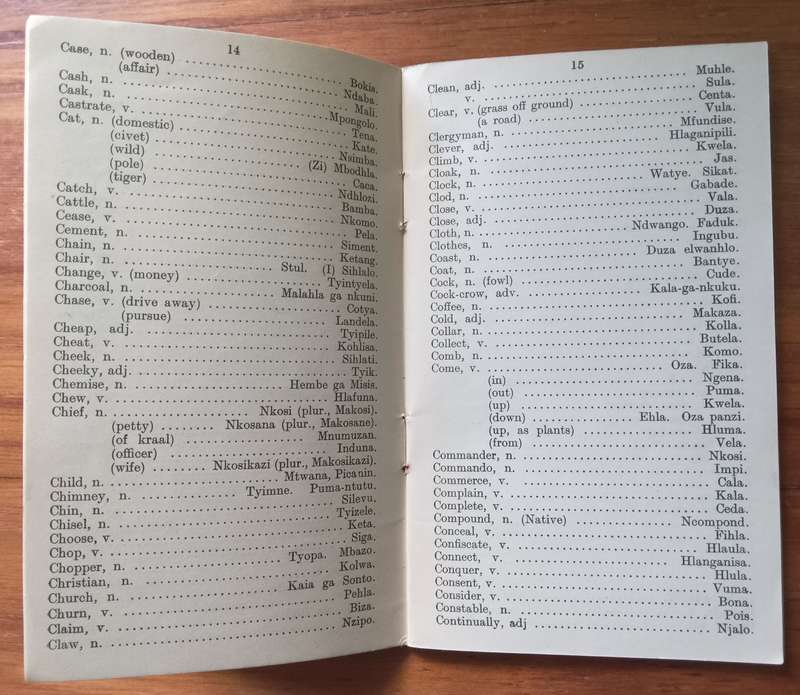 14
Case, n. (wooden) ........ Bokis.
(affair) ........ Ndaba.
Cash, n. ........ Mali.
Cask, n. ........ Mpongolo.
Castrate, v. ........ Tena.
Cat, n. (domestic) ........ Kate.
(civet) ........ Nsimba.
(wild) ........ (Zi) Mbodhla.
(pole) ........ Caca.
(tiger) ........ Ndhlozi.
Catch, v. ........ Bamba.
Cattle, n. ........ Nkomo.
Cease, v. ........ Pela.
Cement, n. ........ Siment.
Chain, n. ........ Ketang.
Chair, n. ........ Stul. (I) Sihlalo.
Change, v. (money) ........ Tyintyela.
Charcoal, n. ........ Malahla ga nkuni.
Chase, v. (drive away) ........ Cotya.
(pursue) ........ Landela.
Cheap, adj. ........ Tyipile.
Cheat, v. ........ Kohlisa.
Cheek, n. ........ Sihlati.
Cheeky, adj. ........ Tyik.
Chemise, n. ........ Hembe ga Misis.
Chew, v. ........ Hlafuna.
Chief, n. ........ Nkosi (plur., Makosi).
(petty) ........ Nkosana (plur., Makosane).
(of kraal) ........ Mnumuzan.
(officer) ........ Induna.
(wife) ........ Nkosikazi (plur., Makosikazi).
Child, n. ........ Mtwana, Picanin.
Chimney, n. ........ Tyimne. Puma-ntutu.
Chin, n. ........ Silevu.
Chisel, n. ........ Tyizele.
Choose, v. ........ Keta.
Chop, v. ........ Siga.
Chopper, n. ........ Tyopa. Mbazo.
Christian, n. ........ Kolwa.
Church, n. ........ Kaia ga Sonto.
Churn, v. ........ Pehla.
Claim, v. ........ Biza.
Claw, n. ........ Nzipo.
15
Clean, adj. ........ Muhle.
v. ........ Sula.
Clear, v. (grass off ground) ........ Centa.
(a road) ........ Vula.
Clergyman, n. ........ Mfundise.
Clever, adj. ........ Hlaganipili.
Climb, v. ........ Kwela.
Cloak, n. ........ Jas.
Clock, n. ........ Watye. Sikat.
Clod, n. ........ Gabade.
Close, v. ........ Vala.
Close, adj. ........ Duza.
Cloth, n. ........ Ndwango. Faduk.
Clothes, n. ........ Ingubu.
Coast, n. ........ Duza elwanhlo.
Coat, n. ........ Bantye.
Cock, n. (fowl) ........ Cude.
Cock-crow, adv. ........ Kala-ga-nkuku.
Coffee, n. ........ Kofi.
Cold, adj. ........ Makaza.
Collar, n. ........ Kolla.
Collect, v. ........ Butela.
Comb, n. ........ Komo.
Come, v. ........ Oza. Fika.
(in) ........ Ngena.
(out) ........ Puma.
(up) ........ Kwela.
(down) ........ Ehla. Oza panzi.
(up, as plants) ........ Hluma.
(from) ........ Vela.
Commander, n. ........ Nkosi.
Commando, n. ........ Impi.
Commerce, v. ........ Cala.
Complain, v. ........ Kala.
Complete, v. ........ Ceda.
Compound, n. (Native) ........ Ncompond.
Conceal, v. ........ Fihla.
Confiscate, v. ........ Hlaula.
Connect, v. ........ Hlanganisa.
Conquer, v. ........ Hlula.
Consent, v. ........ Vuma.
Consider, v. ........ Bona.
Constable, n. ........ Pois.
Continually, adj ........ Njalo.